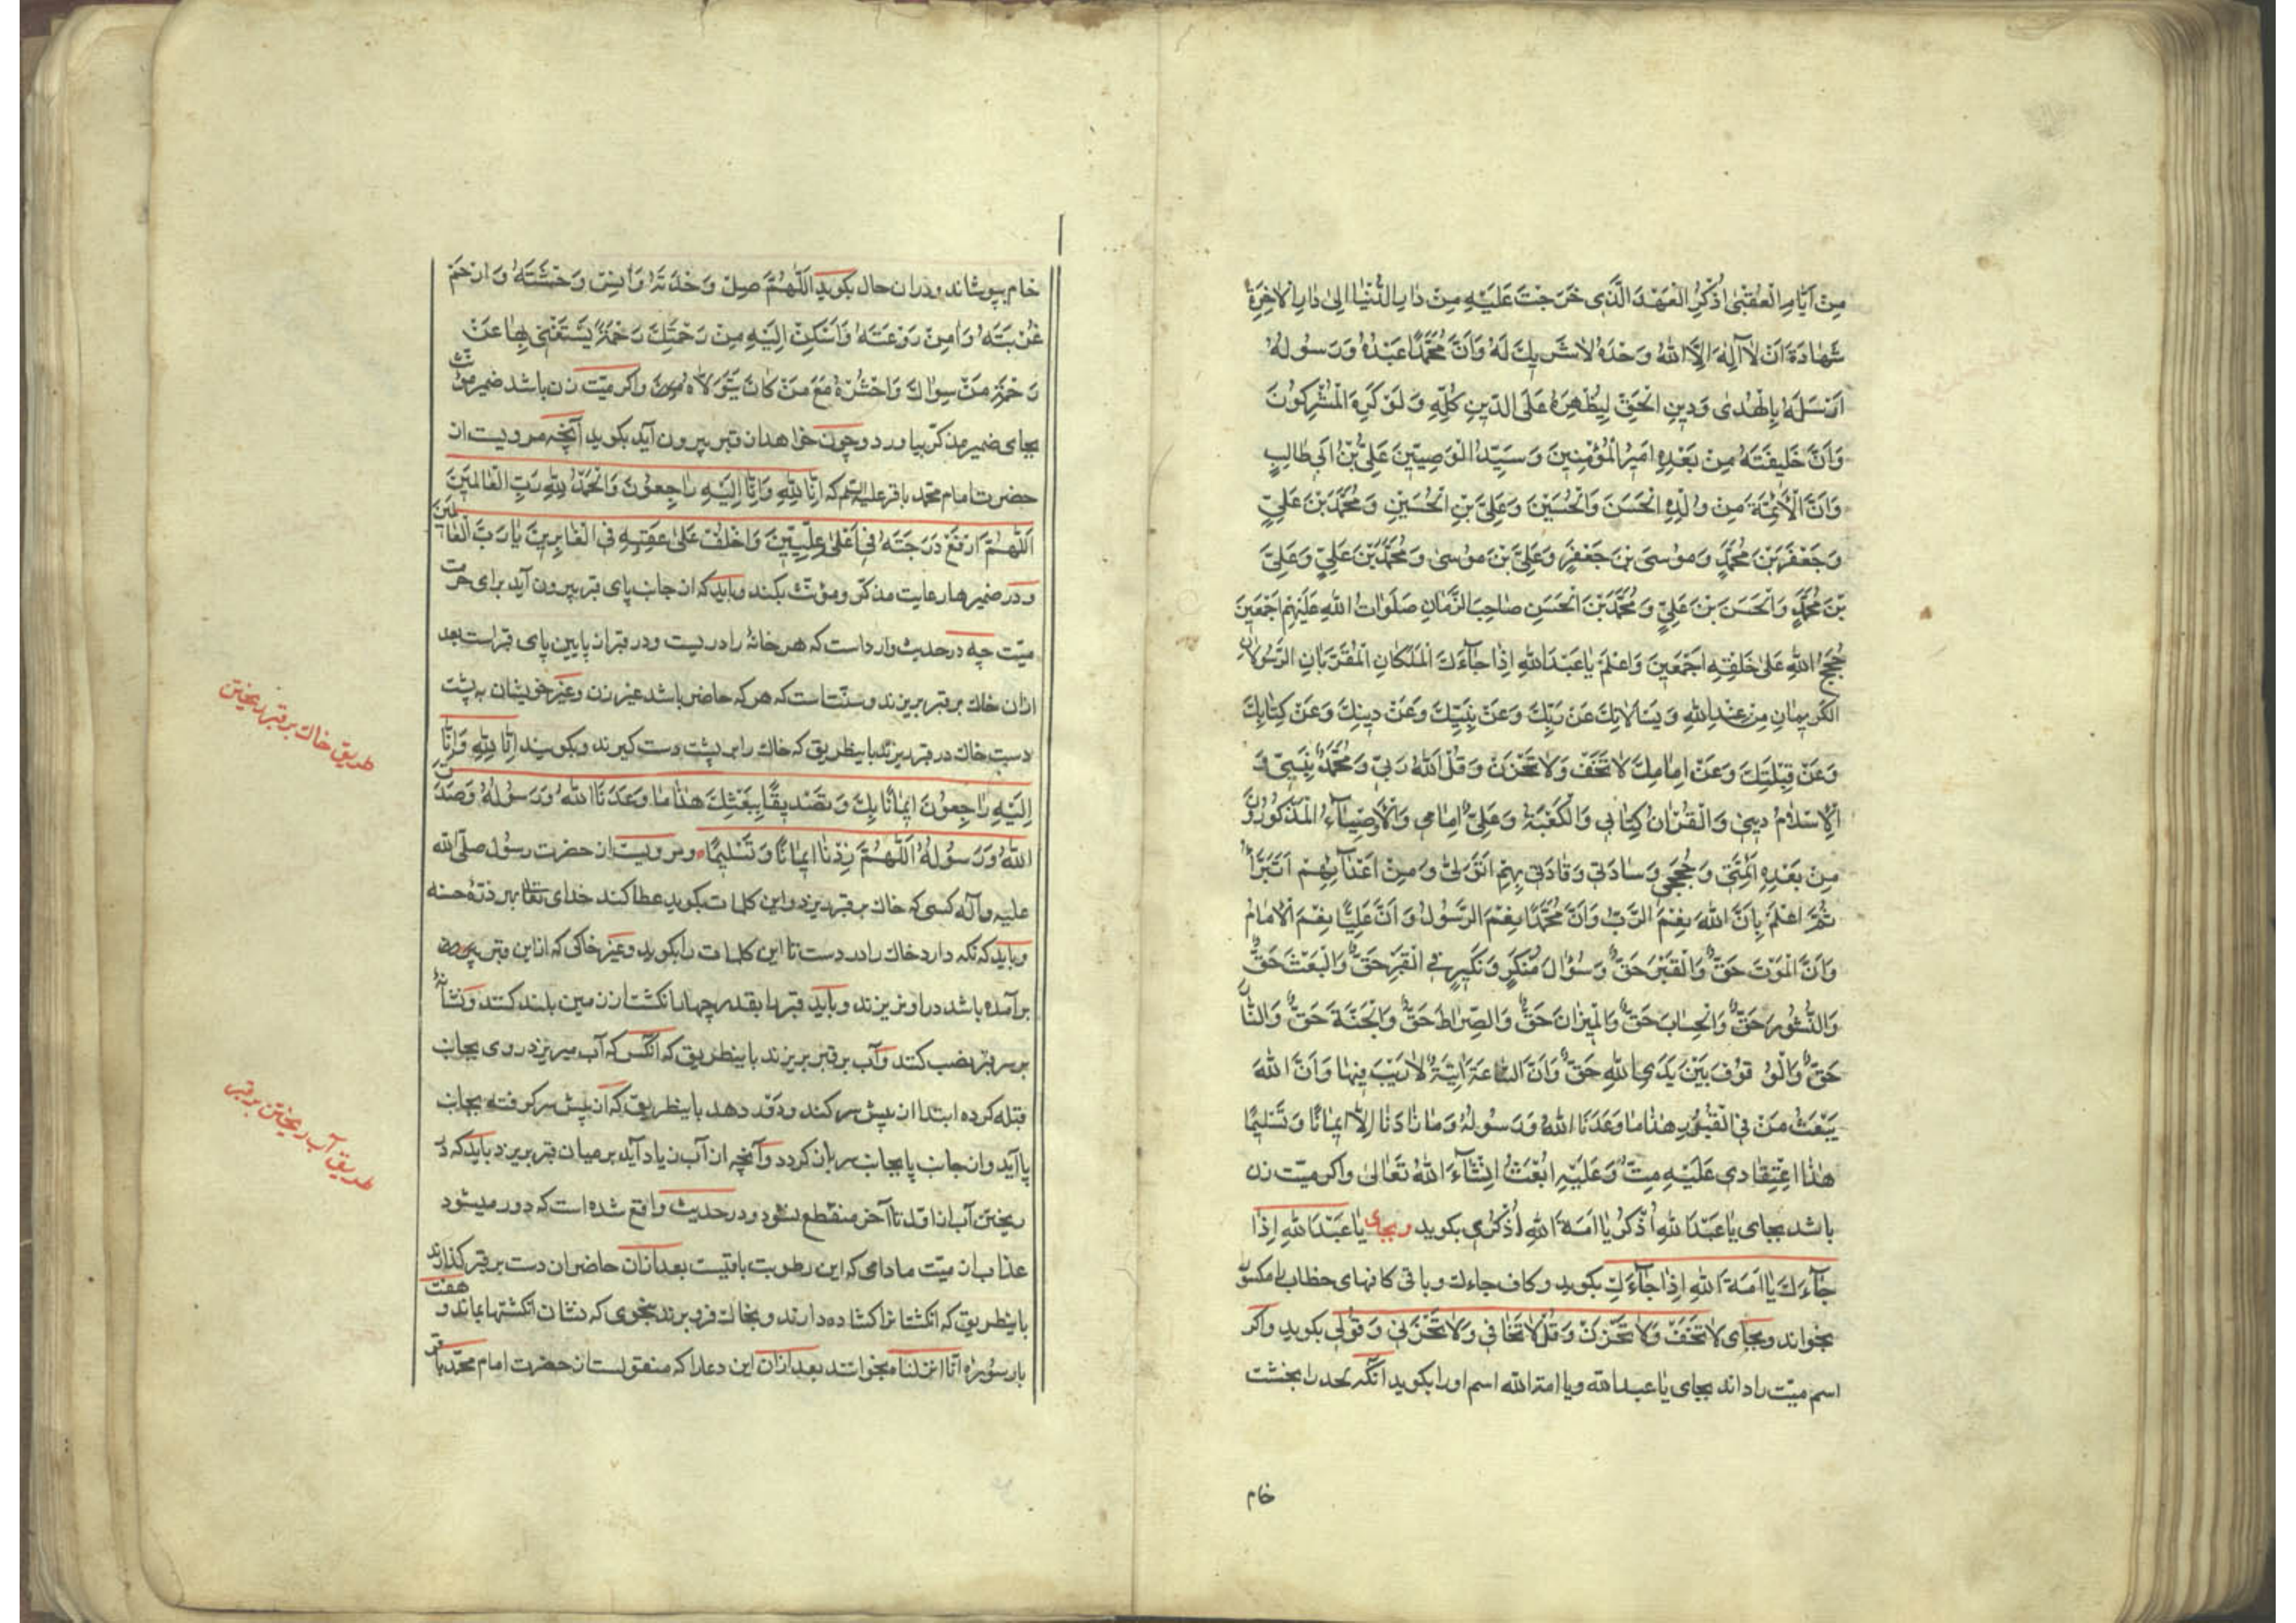 مِنْ اَيّامِ الْعُقْبىٰ اُذْكُرِ الْعَهْدَ الَّذى خَرَجْتَ عَلَيْهِ مِنْ دٰارِ الدُّنْيٰا اِلىٰ دٰارِ الْاٰخِرَةِ
شَهٰادَةَ اَنْ لاٰ اِلٰهَ اِلَّا اللهُ وَحْدَهُ لاٰ شَرِيكَ لَهُ وَاَنَّ مُحَمَّدًا عَبْدُهُ وَرَسُولُهُ
اَرْسَلَهُ بِالْهُدىٰ وَدِينِ الْحَقِّ لِيُظْهِرَهُ عَلَى الدّينِ كُلِّهِ وَلَوْ كَرِهَ الْمُشْرِكُونَ
وَاَنَّ خَلِيفَتَهُ مِنْ بَعْدِهِ اَمِيرُ الْمُؤْمِنِينَ وَسَيِّدُ الْوَصِيّينَ عَلِىُّ بْنُ اَبِي طٰالِبٍ
وَاَنَّ الْاَئِمَّةَ مِنْ وُلْدِهِ الْحَسَنَ وَالْحُسَيْنَ وَعَلِىَّ بْنَ الْحُسَيْنِ وَمُحَمَّدَ بْنَ عَلِىٍّ
وَجَعْفَرَ بْنَ مُحَمَّدٍ وَمُوسَى بْنَ جَعْفَرٍ وَعَلِىَّ بْنَ مُوسىٰ وَمُحَمَّدَ بْنَ عَلِىٍّ وَعَلِىَّ
بْنَ مُحَمَّدٍ وَالْحَسَنَ بْنَ عَلِيٍّ وَمُحَمَّدَ بْنَ الْحَسَنِ صٰاحِبَ الزَّمٰانِ صَلَوٰاتُ اللهِ عَلَيْهِمْ اَجْمَعِينَ
حُجَجُ اللهِ عَلىٰ خَلْقِهِ اَجْمَعِينَ وَاعْلَمْ يٰا عَبْدَ اللهِ اِذٰا جٰآءَكَ الْمَلَكٰانِ الْمُقَرَّبٰانِ الرَّسُولاٰنِ
الْكَرِيمٰانِ مِنْ عِنْدِ اللهِ وَيَسْاَلاٰنِكَ عَنْ رَبِّكَ وَعَنْ نَبِيِّكَ وَعَنْ دِينِكَ وَعَنْ كِتٰابِكَ
وَعَنْ قِبْلَتِكَ وَعَنْ اِمٰامِكَ لاٰ تَخَفْ وَلاٰ تَحْزَنْ وَقُلْ اَللهُ رَبّى وَمُحَمَّدٌ نَبِيّى وَ
الْاِسْلاٰمُ دِينِي وَالْقُرْاٰنُ كِتٰابِي وَالْكَعْبَةُ وَعَلِىٌّ اِمٰامِي وَالْاَوْصِيٰآءُ الْمَذْكُورُونَ
مِنْ بَعْدِهِ اَئِمَّتِي وَحُجَجِي وَسٰادَتِي وَقٰادَتِي بِهِمْ اَتَوَلّىٰ وَمِنْ اَعْدٰآئِهِمْ اَتَبَرَّأُ
ثُمَّ اعْلَمْ بِاَنَّ اللهَ نِعْمَ الرَّبُّ وَاَنَّ مُحَمَّدًا نِعْمَ الرَّسُولُ وَاَنَّ عَلِيًّا نِعْمَ الْاِمٰامُ
وَاَنَّ الْمَوْتَ حَقٌّ وَالْقَبْرَ حَقٌّ وَسُؤٰالَ مُنْكَرٍ وَنَكِيرٍ فِي الْقَبْرِ حَقٌّ وَالْبَعْثَ حَقٌّ
وَالنُّشُورَ حَقٌّ وَالْحِسٰابَ حَقٌّ وَالْمِيزٰانَ حَقٌّ وَالصِّرٰاطَ حَقٌّ وَالْجَنَّةَ حَقٌّ وَالنّٰارَ
حَقٌّ وَالْوُقُوفَ بَيْنَ يَدَىِ اللهِ حَقٌّ وَاَنَّ السّٰاعَةَ اٰتِيَةٌ لاٰ رَيْبَ فِيهٰا وَاَنَّ اللهَ
يَبْعَثُ مَنْ فِي الْقُبُورِ هٰذٰا مٰا وَعَدَنَا اللهُ وَرَسُولُهُ وَمٰا زٰادَنٰا اِلّٰا اِيمٰانًا وَتَسْلِيمًا
هٰذَا اعْتِقٰادِي عَلَيْهِ مِتُّ وَعَلَيْهِ اُبْعَثُ اِنْشٰآءَ اللهُ تَعٰالىٰ واكر ميّت زن
باشد بجاى يٰا عَبْدَ اللهِ اُذْكُرْ يٰا اَمَةَ اللهِ اُذْكُرِي بكويد وبجاى يٰا عَبْدَ اللهِ اِذٰا
جٰآءَكَ يٰا اَمَةَ اللهِ اِذٰا جٰآءَكِ بكويد وكاف جاءك وباقى كافهاى خطاب را مكسور
بخواند وبجاى لاٰ تَخَفْ وَلاٰ تَحْزَنْ وَقُلْ لاٰ تَخٰافِي وَلاٰ تَحْزَنِي وَقُولِي بكويد واكر
اسم ميّت را داند بجاى يا عبد الله ويا امة الله اسم او را بكويد آنكه لحد را بخشت
خام
خام بپوشاند ودران حال بكويد اَللّٰهُمَّ صِلْ وَحْدَتَهُ وَاٰنِسْ وَحْشَتَهُ وَارْحَمْ
غُرْبَتَهُ وَاٰمِنْ رَوْعَتَهُ وَاَسْكِنْ اِلَيْهِ مِنْ رَحْمَتِكَ رَحْمَةً يَسْتَغْنِي بِهٰا عَنْ
رَحْمَةِ مَنْ سِوٰاكَ وَاحْشُرْهُ مَعَ مَنْ كٰانَ يَتَوَلاّٰهُ واكر ميّت زن باشد ضمير مؤنّث
بجاى ضمير مذكّر بياورد وچون خواهد از قبر بيرون آيد بكويد آنچه مرويست از
حضرت امام محمّد باقر عليه السّلم كه اِنّٰا لِلّٰهِ وَاِنّٰا اِلَيْهِ رٰاجِعُونَ وَالْحَمْدُ لِلّٰهِ رَبِّ الْعٰالَمِينَ
اَللّٰهُمَّ ارْفَعْ دَرَجَتَهُ فِي اَعْلىٰ عِلِّيِّينَ وَاخْلُفْ عَلىٰ عَقِبِهِ فِي الْغٰابِرِينَ يٰا رَبَّ الْعٰالَمِينَ
ودر ضميرها رعايت مذكّر ومؤنّث بكند وبايد كه از جانب پاى قبر بيرون آيد براى حرمت
ميّت چه در حديث وارد است كه هر خانه را دريست ودر قبر از پايين پاى قبر است بعد
ازان خاك بر قبر بريزند وسنّت است كه هر كه حاضر باشد غير زن وغير خويشان به پشت
دست خاك در قبر بريزند باينطريق كه خاك را بر پشت دست كيرند وبكويند اِنّٰا لِلّٰهِ وَاِنّٰا
اِلَيْهِ رٰاجِعُونَ اِيمٰانًا بِكَ وَتَصْدِيقًا بِبَعْثِكَ هٰذٰا مٰا وَعَدَنَا اللهُ وَرَسُولُهُ وَصَدَقَ
اللهُ وَرَسُولُهُ اَللّٰهُمَّ زِدْنٰا اِيمٰانًا وَتَسْلِيمًا ومرويست از حضرت رسول صلّى الله
عليه وآله كسى كه خاك بر قبر بريزد واين كلمات بكويد عطا كند خداى تعا بهر ذرّه حسنه
وبايد كه نكه دارد خاك را در دست تا اين كلمات را بكويد وغير خاكى كه از اين قبر بيرون
برآمده باشد در او نريزند وبايد قبر را بقدر چهار انكشت از زمين بلند كنند ونشانه
بر سر قبر نصب كنند وآب بر قبر بريزند باينطريق كه آنكس كه آب ميريزد روى بجانب
قبله كرده ابتدا از پيش سر كند ودور دهد باينطريق كه از پيش سر كرفته بجانب
پا آيد واز جانب پا بجانب سر باز كردد وآنچه از آب زياد آيد بر ميان قبر بريزد بايد كه در
ريختن آب از اوّل تا آخر منقطع نشود ودر حديث واقع شده است كه دور ميشود
عذاب از ميّت مادامى كه اين رطوبت باقيست بعد ازان حاضران دست بر قبر كذارند
باينطريق كه انكشتانرا كشاده دارند وبخاك فرو برند بنحوى كه نشان انكشتها بماند و هفت
بار سورۀ انّا انزلنا بخوانند بعد ازان اين دعا را كه منقولست از حضرت امام محمّد باقر
طريق خاك بر قبر ريختن
طريق آب ريختن بر قبر